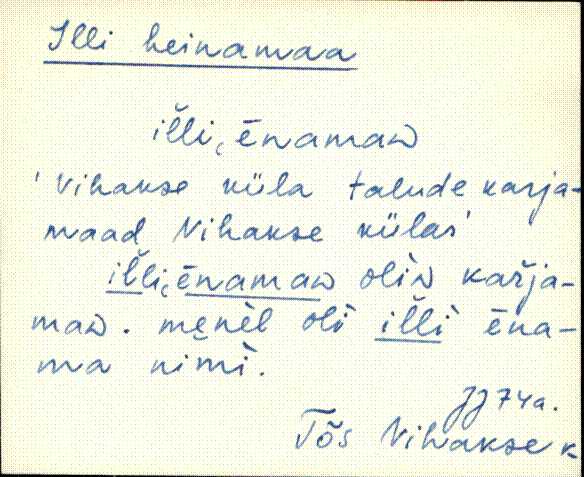 Illi heinamaa
iĺli‿ēnamaw
'Vihakse küla talude karja-
maad Vihakse külas'
iĺli‿ēnamaw oliv kaŕja-
maw. menèl oli iĺli ēna-
ma nimi.
JJ 74a.
Tõs Vihakse k